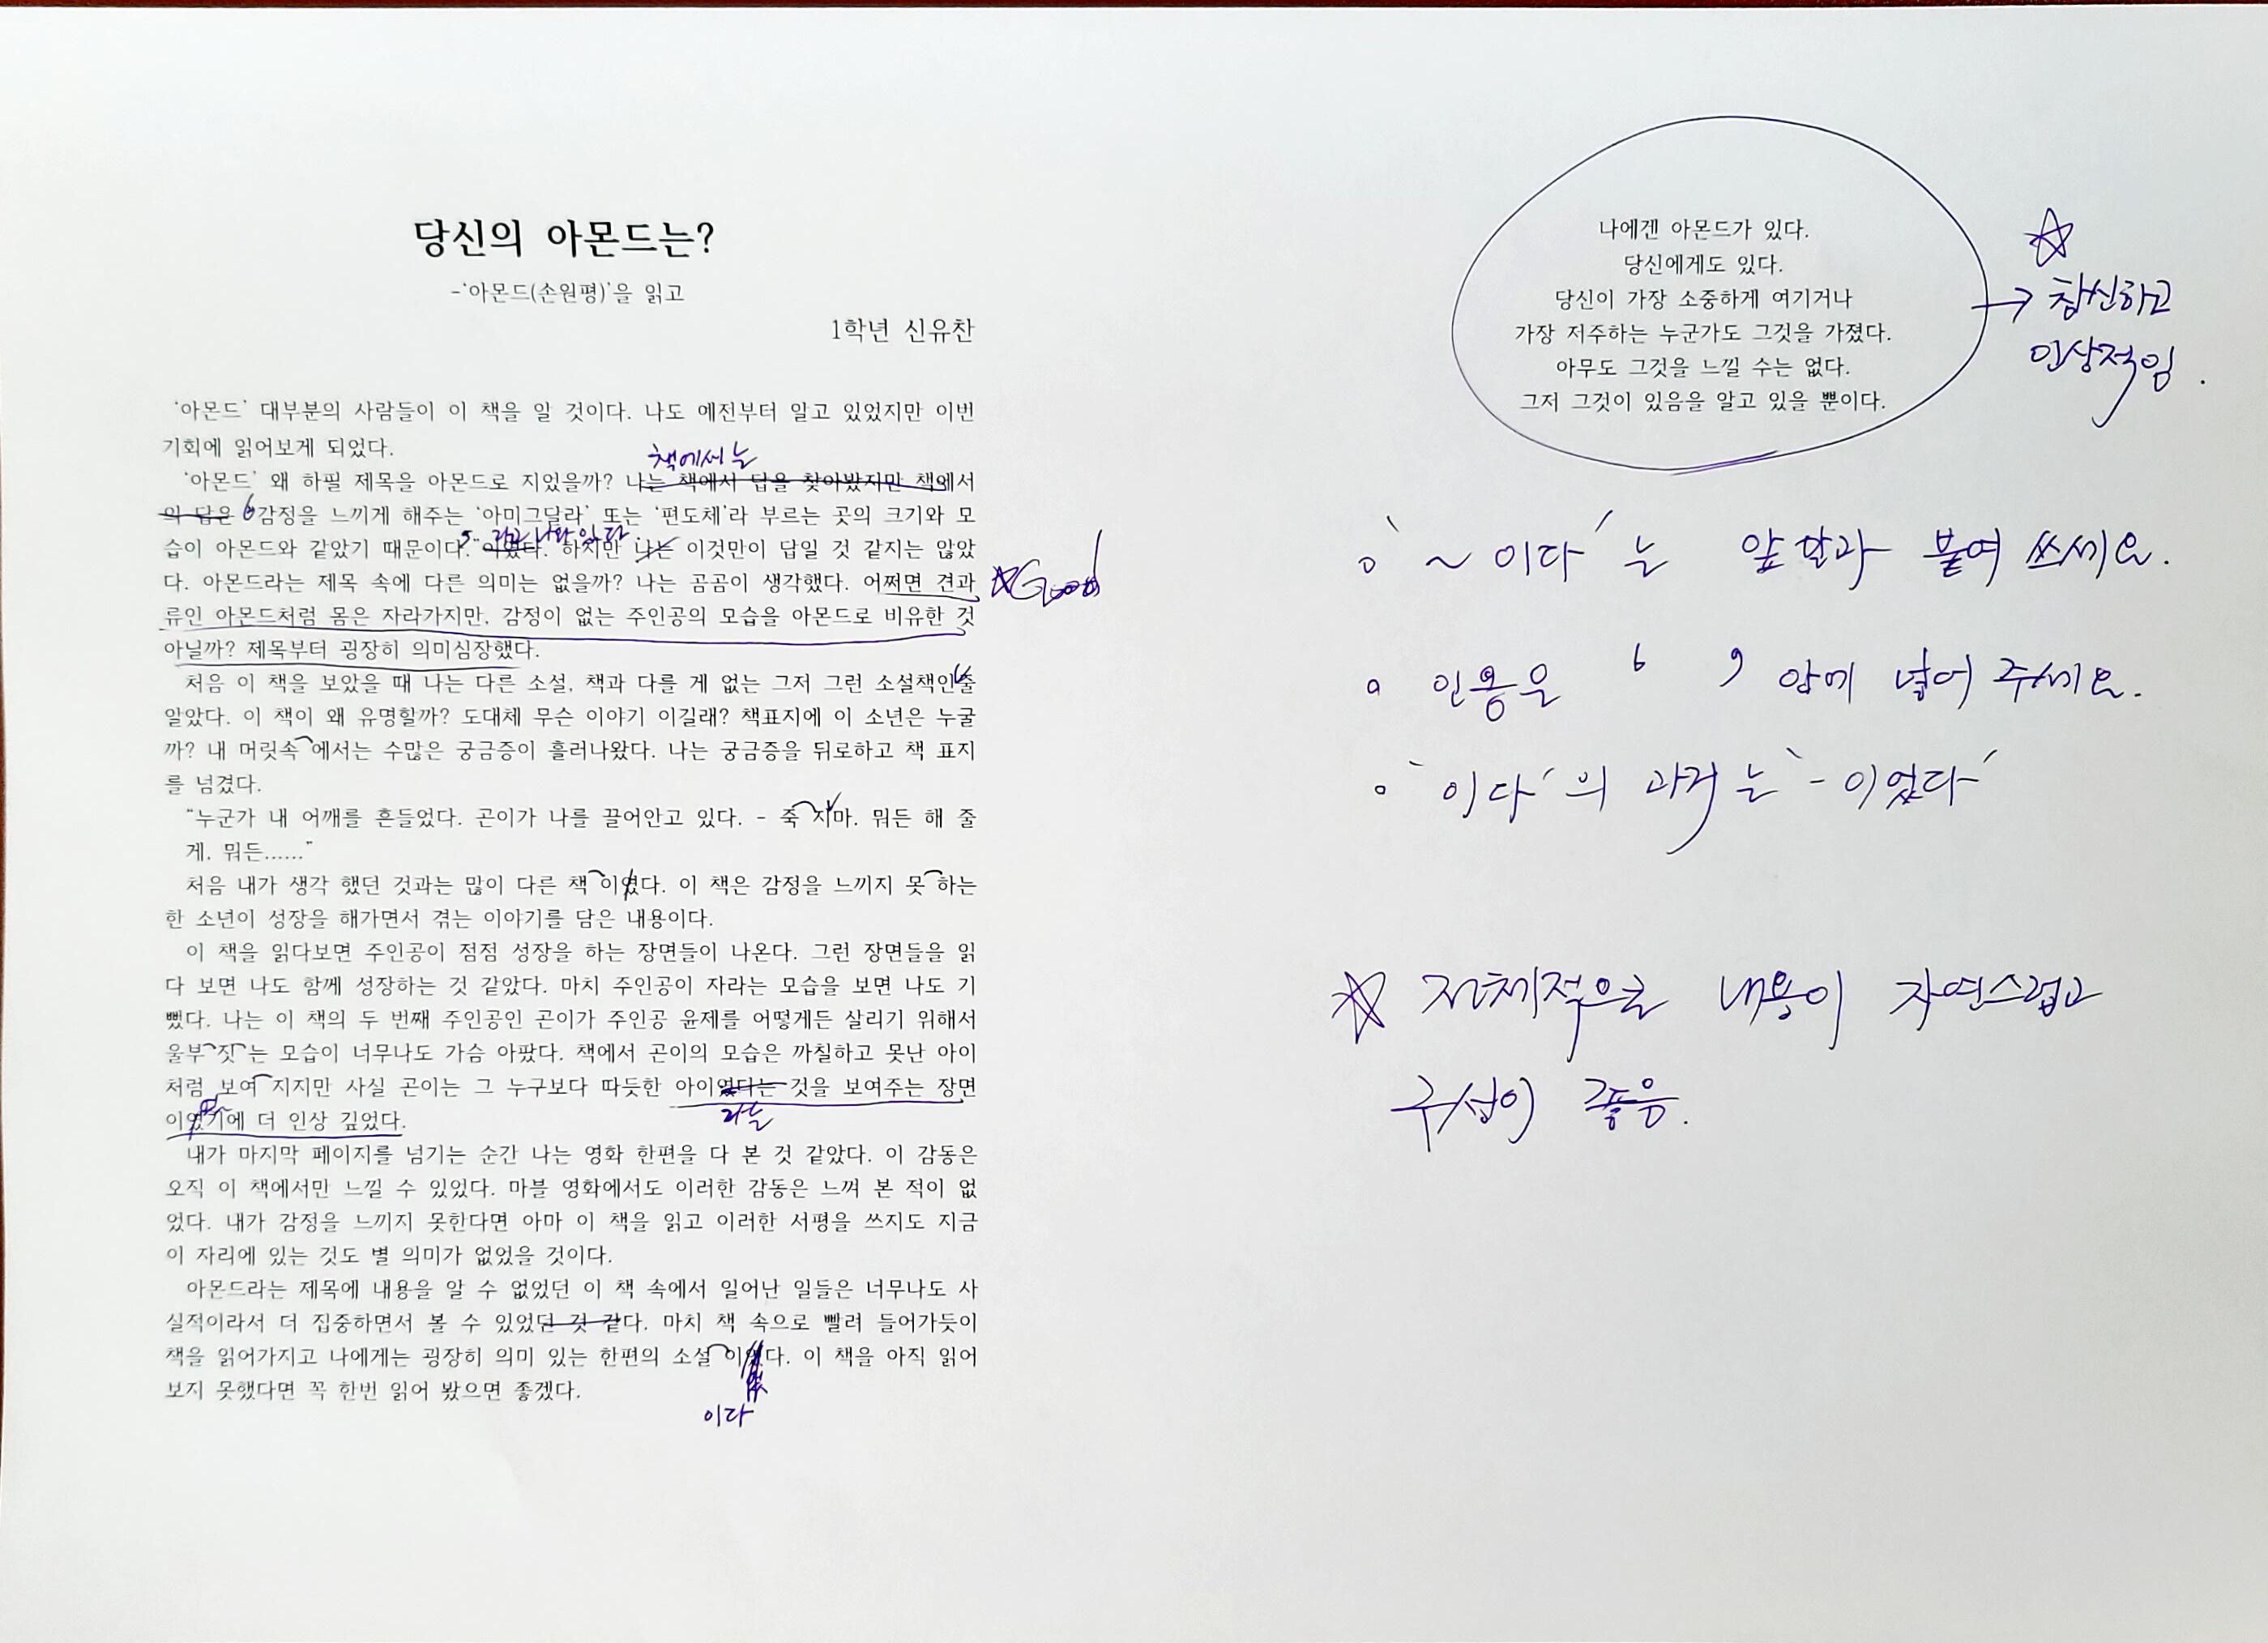 당신의 아몬드는?
-'아몬드(손원평)'을 읽고
1학년 신유찬
'아몬드' 대부분의 사람들이 이 책을 알 것이다. 나도 예전부터 알고 있었지만 이번
기회에 읽어보게 되었다.
책에서는
'아몬드' 왜 하필 제목을 아몬드로 지었을까? 나는 책에서 답을 찾아봤지만 책에서
의 답은 '감정을 느끼게 해주는 '아미그달라' 또는 '편도체'라 부르는 곳의 크기와 모
' 라고 나와 있다.
습이 아몬드와 같았기 때문이다." 이였다. 하지만 나는 이것만이 답일 것 같지는 않았
다. 아몬드라는 제목 속에 다른 의미는 없을까? 나는 곰곰이 생각했다. 어쩌면 견과
☆Good
류인 아몬드처럼 몸은 자라가지만, 감정이 없는 주인공의 모습을 아몬드로 비유한 것
아닐까? 제목부터 굉장히 의미심장했다.
처음 이 책을 보았을 때 나는 다른 소설, 책과 다를 게 없는 그저 그런 소설책인줄
알았다. 이 책이 왜 유명할까? 도대체 무슨 이야기 이길래? 책표지에 이 소년은 누굴
까? 내 머릿속 에서는 수많은 궁금증이 흘러나왔다. 나는 궁금증을 뒤로하고 책 표지
를 넘겼다.
"누군가 내 어깨를 흔들었다. 곤이가 나를 끌어안고 있다. - 죽 지마. 뭐든 해 줄
게. 뭐든......"
처음 내가 생각 했던 것과는 많이 다른 책 이였다. 이 책은 감정을 느끼지 못 하는
한 소년이 성장을 해가면서 겪는 이야기를 담은 내용이다.
이 책을 읽다보면 주인공이 점점 성장을 하는 장면들이 나온다. 그런 장면들을 읽
다 보면 나도 함께 성장하는 것 같았다. 마치 주인공이 자라는 모습을 보면 나도 기
뻤다. 나는 이 책의 두 번째 주인공인 곤이가 주인공 윤제를 어떻게든 살리기 위해서
울부 짓 는 모습이 너무나도 가슴 아팠다. 책에서 곤이의 모습은 까칠하고 못난 아이
처럼 보여 지지만 사실 곤이는 그 누구보다 따듯한 아이였다는 것을 보여주는 장면
라는
이였기에 더 인상 깊었다.
내가 마지막 페이지를 넘기는 순간 나는 영화 한편을 다 본 것 같았다. 이 감동은
오직 이 책에서만 느낄 수 있었다. 마블 영화에서도 이러한 감동은 느껴 본 적이 없
었다. 내가 감정을 느끼지 못한다면 아마 이 책을 읽고 이러한 서평을 쓰지도 지금
이 자리에 있는 것도 별 의미가 없었을 것이다.
아몬드라는 제목에 내용을 알 수 없었던 이 책 속에서 일어난 일들은 너무나도 사
실적이라서 더 집중하면서 볼 수 있었던 것 같다. 마치 책 속으로 빨려 들어가듯이
책을 읽어가지고 나에게는 굉장히 의미 있는 한편의 소설 이였다. 이 책을 아직 읽어
보지 못했다면 꼭 한번 읽어 봤으면 좋겠다.
이다
나에겐 아몬드가 있다.
당신에게도 있다.
당신이 가장 소중하게 여기거나
가장 저주하는 누군가도 그것을 가졌다.
아무도 그것을 느낄 수는 없다.
그저 그것이 있음을 알고 있을 뿐이다.
☆
→ 참신하고
인상적임.
◦ '~이다'는 앞말과 붙여 쓰세요.
◦ 인용은 ' ' 안에 넣어 주세요.
◦ '이다'의 과거는 '-이었다'
☆ 전체적으로 내용이 자연스럽고
구성이 좋음.